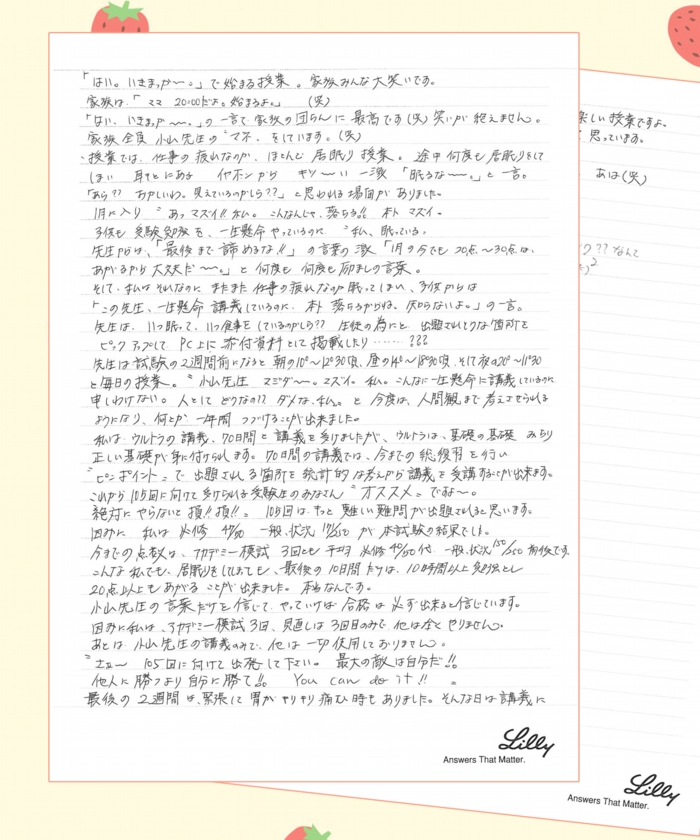 「はい。いきまっか〜。」で始まる授業。家族みんな大笑いです。
家族は「ママ 20:00だよ。始まるよ。」 (笑)
「はい、いきまっか〜。」の一言で家族の団らんに最高です(笑)笑いが絶えません。
家族全員 小山先生の〝マネ〟をしています。(笑)
・授業では、仕事の疲れなのか、ほとんど居眠り授業。途中何度も居眠りをして
しまい 耳もとにある イヤホンから キツ〜い一激「眠るな〜。」と一言。
「あら?? おかしいわ。見えているのかしら??」と思われる場面がありました。
1月に入り〝あっマズイ!!私。こんなんじゃ、落ちる!! 本トマズイ。
子供も受験勉強を、一生懸命やっているのに〝私、眠っている。
先生からは、「最後まで諦めるな!!」の言葉の激「1月の今でも20点〜30点は、
あがるから大丈夫だ〜。」と何度も何度も励ましの言葉。
そして、私はそれなのにまたまた仕事の疲れなのか眠ってしまい、子供からは
「この先生、一生懸命講義しているのに、本ト落ちるからね、知らないよ。」の一言。
先生は、いつ眠って、いつ食事をしているのかしら?? 生徒の為にと、出題されそうな箇所を
ピックアップして PC上に添付資料として掲載したり………???
先生は試験の2週間前になると朝の10°〜12°30頃、昼の14°〜18°30頃、そして夜の20°〜11°30
と毎日の授業。〝小山先生 スミダ〜。マズイ。私。こんなに一生懸命に講義しているのに
申しわけない。人としてどうなの?? ダメな、私。と 今度は、人間観まで考えさせられる
ようになり、何とか一年間 つづけることが出来ました。
私は、ウルトラの講義、70日間と講義を受けましたが、ウルトラは、基礎の基礎 みっちり
正しい基礎が身に付けられます。70日間の講義では、今までの総復習を行い
〝ピンポイント〟で出題される箇所を統計的な考えから講義を受講することが出来ます。
これから105回に向けて受けられる受験生のみなさん〝オススメ〟ですよ〜。
絶対にやらないと損!!損!!。 105回は、もっと難しい難問が出題されると思います。
因みに 私は 必修 49/50 一般、状況 /250 が本試験の結果でした。
今までの点数は、アカデミー模試 3回とも平均 必修40/50代 一般、状況150/250前後です。
こんな私でも、居眠りをしてしまても、最後の10日間だけは、10時間以上勉強をし
20点以上もあがることが出来ました。本当なんです。
小山先生の言葉だけを信じて、やっていけば合格は必ず出来ると信じています。
因みに私は、アカデミー模試3回、見直しは3回目のみで、他は全くやりません。
あとは、小山先生の講義のみで、他は一切使用しておりません。
〝さぁ〜 105回に向けて出発して下さい。 最大の敵は自分だ!!
他人に勝つより自分に勝て!!。 You can do it!! 。
最後の2週間は、緊張して胃がキリキリ痛む時もありました。そんな日は講義に
Lilly
Answers That Matter.
楽しい授業ですよ。
思っています。
あは(笑)
?? なんて
Lilly
Answers That Matter.